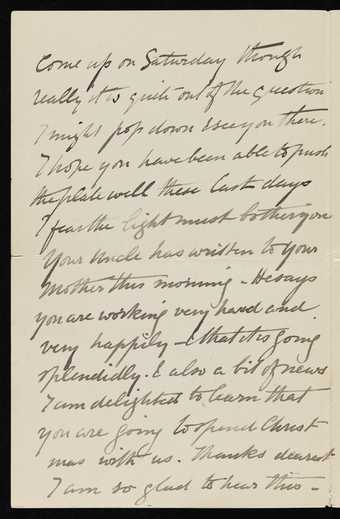 Come up on Saturday though
really it is quite out of the question
I might pop down & see you there.
I hope you have been able to push
the plate well these last days
I fear the light must bother you
Your Uncle has written to your
Mother this morning - He says
you are working very hard and
very happily - & that it is going
splendidly. & also a bit of news
I am delighted to learn that
you are going to spend Christ
mas with us. Thanks dearest
I am so glad to hear this -